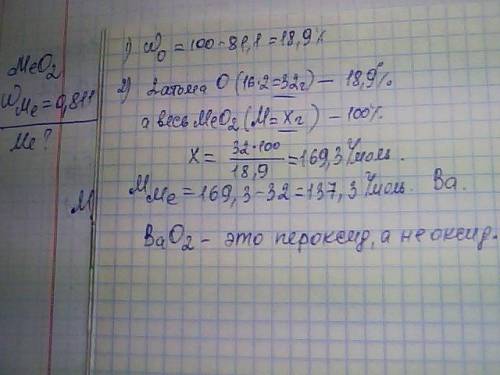 MeO₂
W Me = 0,811
Me?
1) W O = 100 - 81,1 = 18,9%
2) 2 атома O (16·2=32г) — 18,9%
а весь MeO₂ (M=Xг) — 100%
X = 32·100 / 18,9 = 169,3 г/моль.
M Me = 169,3 - 32 = 137,3 г/моль. Ba.
BaO₂ - это пероксид, а не оксид.